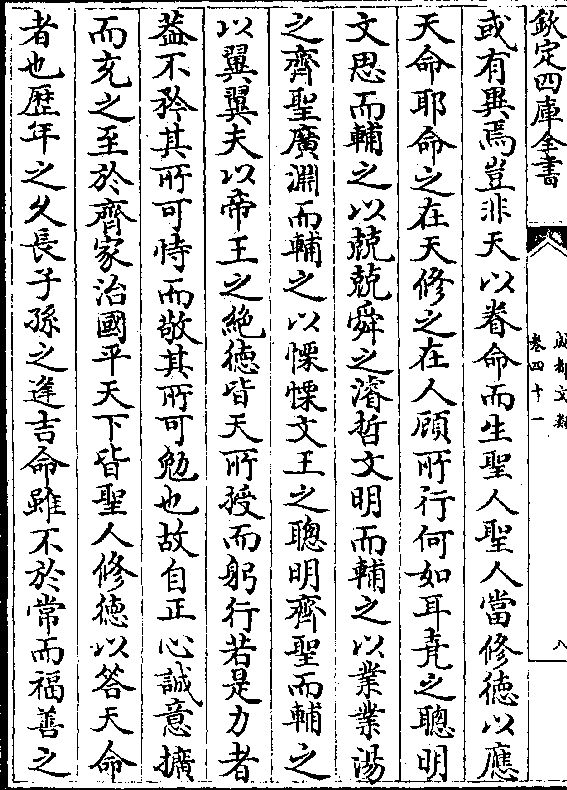 欽定四庫全書
成都文類
卷四十一
八
或有異焉豈非天以眷命而生聖人聖人當修徳以應
天命耶命之在天修之在人顧所行何如耳堯之聰明
文思而輔之以兢兢舜之濬哲文明而輔之以業業湯
之齊聖廣淵而輔之以慄慄文王之聰明齊聖而輔之
以翼翼夫以帝王之絶徳皆天所授而躬行若是力者
葢不矜其所可恃而敬其所可勉也故自正心誠意擴
而充之至於齊家治國平天下皆聖人修徳以答天命
者也歴年之久長子孫之逢吉命雖不於常而福善之